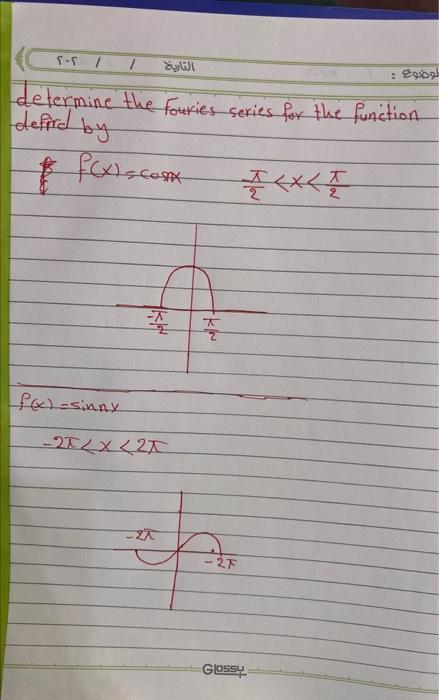 الموضوع :
التاريخ / / ٢٠٢
determine the Fouries series for the function
defind by
f(x) = cosx π/2 < x < π/2
-π/2 π/2
f(x) = sinnx
-2π < x < 2π
-2π
-2π
Glossy